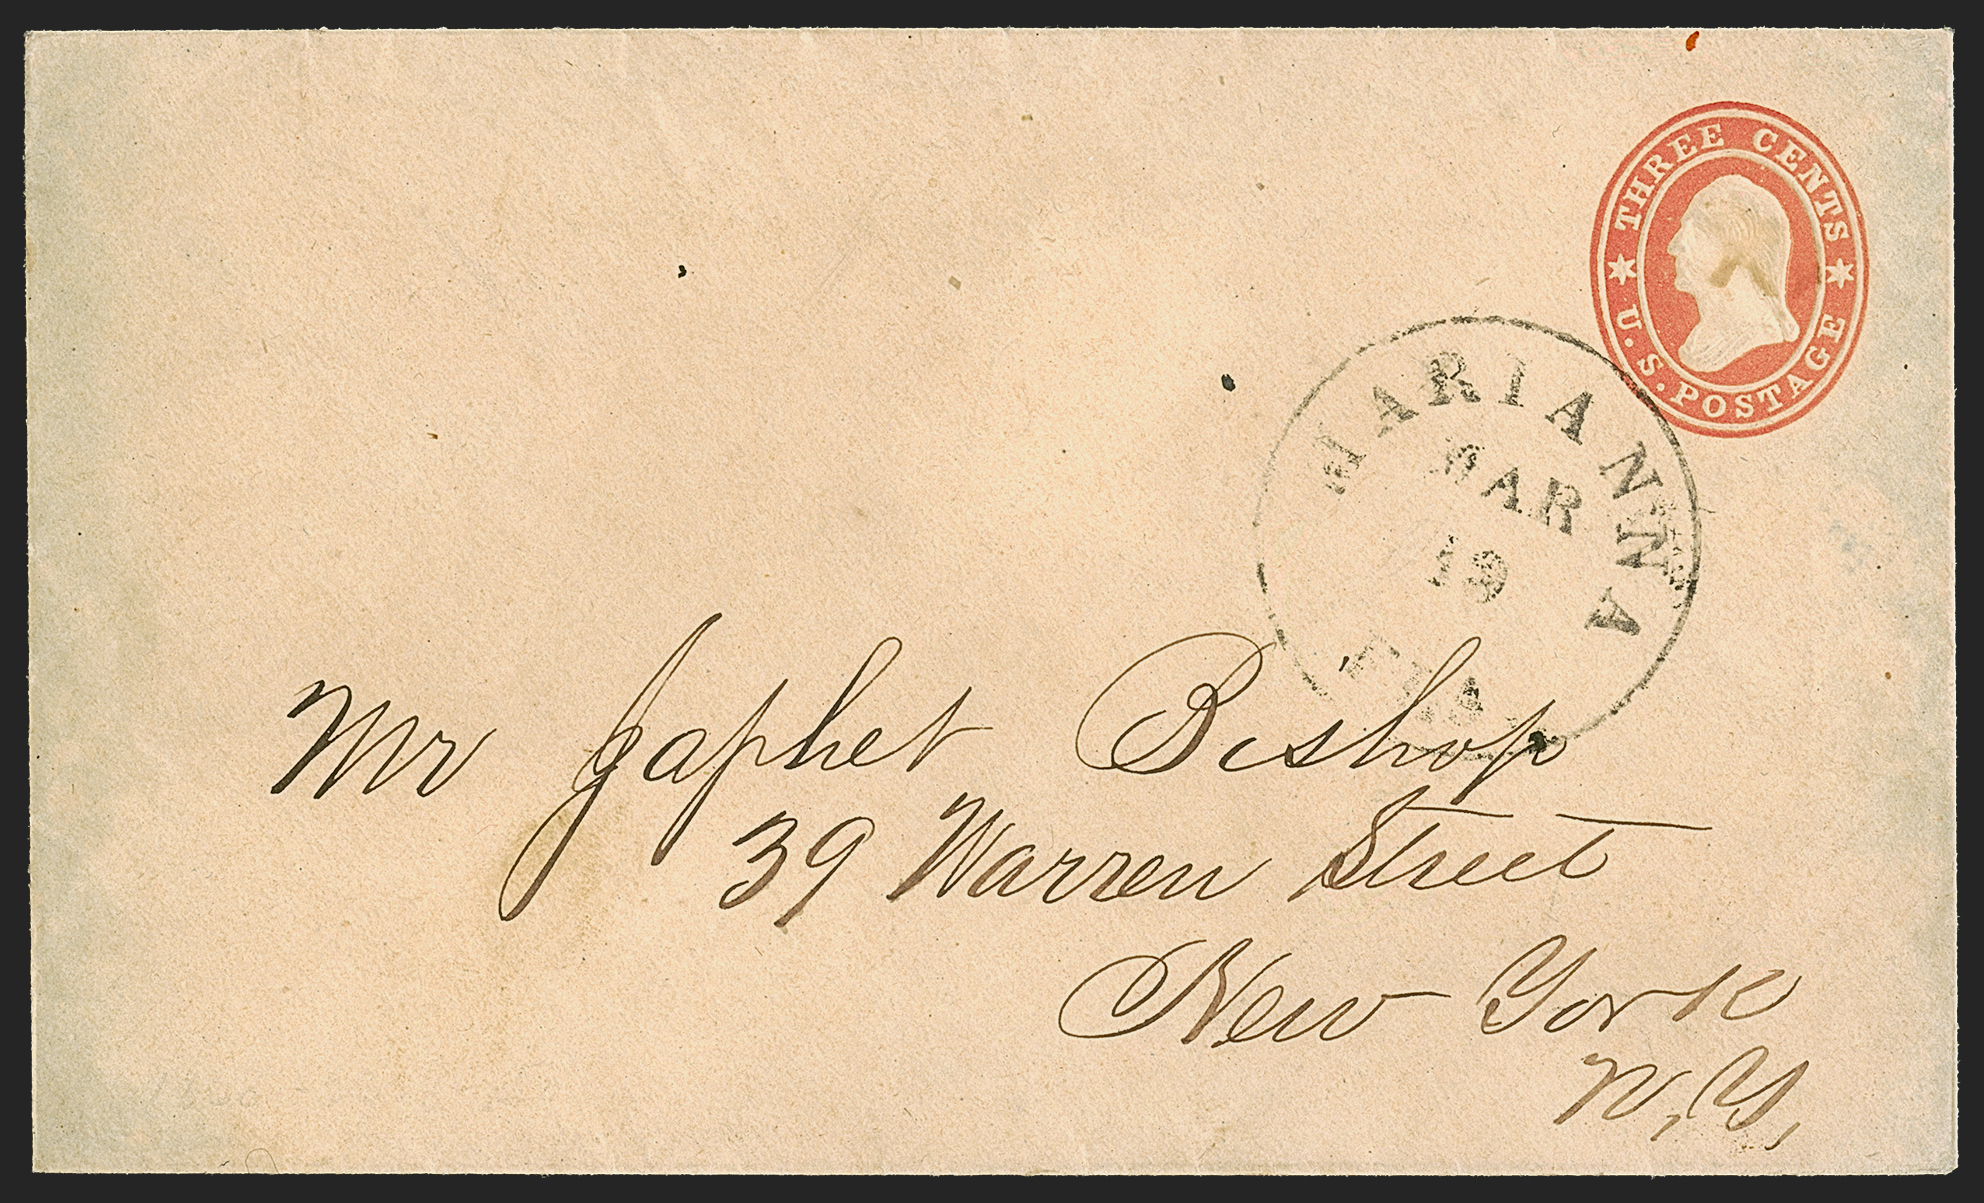 THREE CENTS
U.S. POSTAGE
MARIANNA
MAR
Mr Japhet Bishop
39 Warren Street
New York
N.Y.